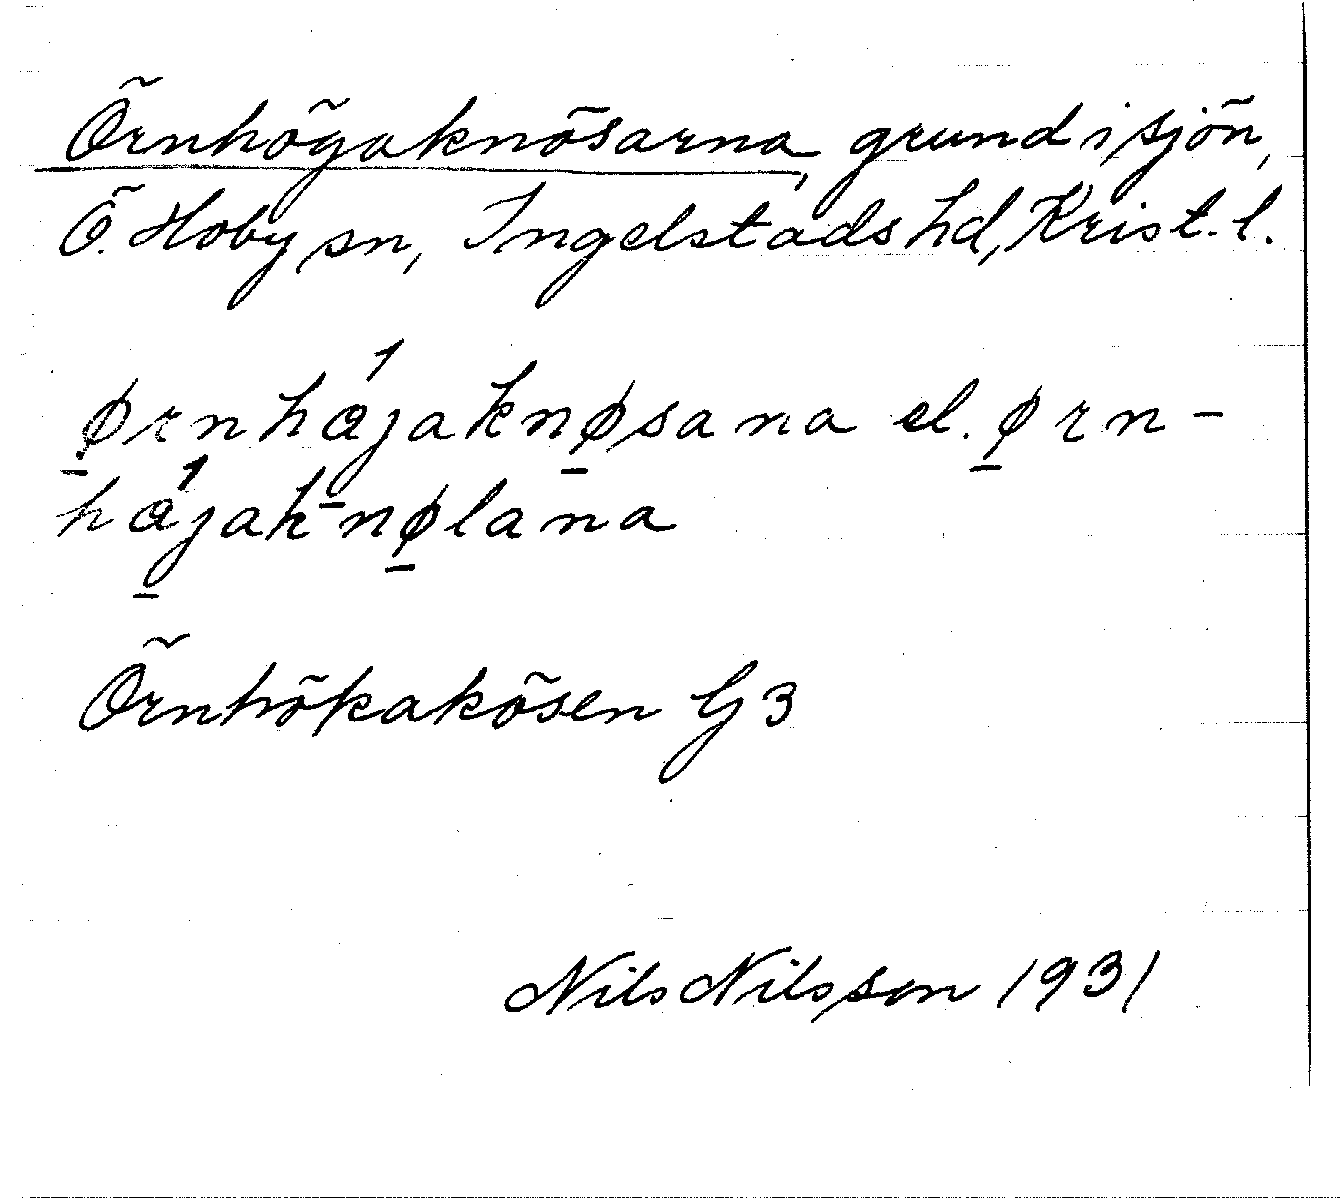 Örnhögaknösarna, grund i sjön,
Ö. Hoby sn, Ingelstads hd, Krist. l.
ørnhǿjaknøsana el. ørn-
hǿjak-nølana
Örnhökakösen G3
Nils Nilsson 1931